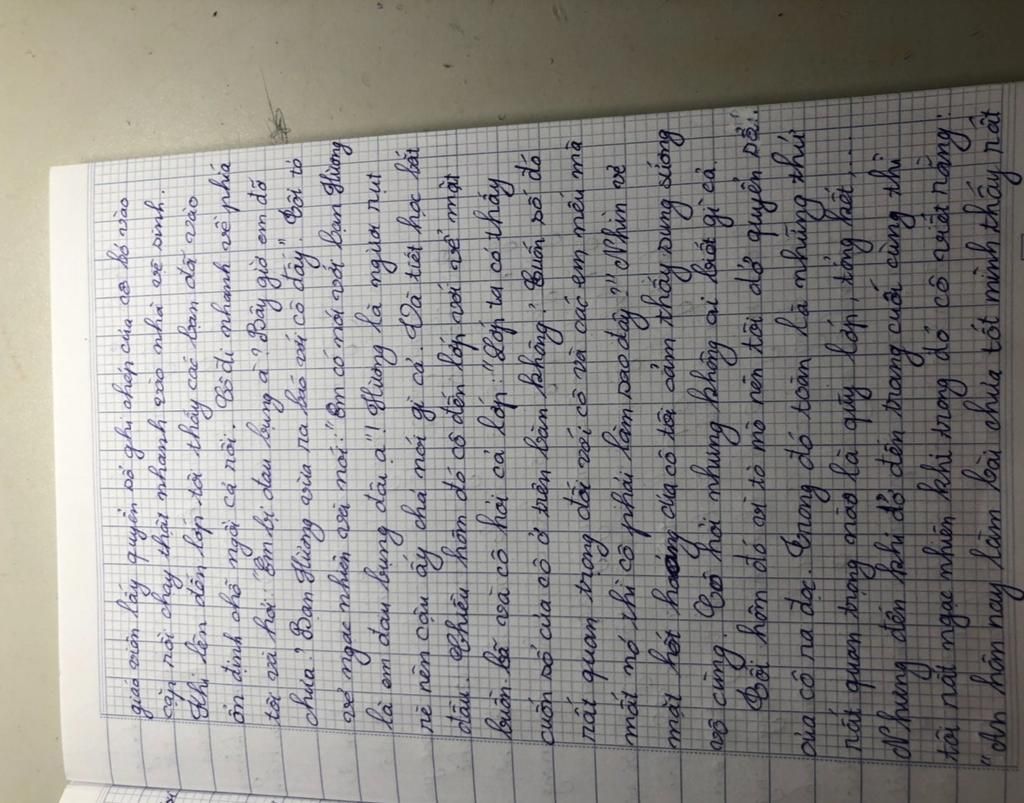 giáo viên lấy quyển sổ ghi chép của cô bỏ vào
cặp rồi chạy thật nhanh vào nhà vệ sinh.
Khi lên đến lớp tôi thấy các bạn đã vào
ổn định chỗ ngồi cả rồi. Cô đi nhanh về phía
tôi và hỏi: "Em bị đau bụng à? Bây giờ em đỡ
chưa? Bạn Hương vừa ra báo với cô đấy". Tôi tỏ
vẻ ngạc nhiên và nói: "Em có nói với bạn Hương
là em đau bụng đâu ạ"! Hương là người rụt
rè nên cậu ấy chả nói gì cả. Và tiết học bắt
đầu. Chiều hôm đó cô đến lớp với vẻ mặt
buồn bã và cô hỏi cả lớp: "Lớp ta có thấy
cuốn sổ của cô ở trên bàn không? Cuốn sổ đó
rất quan trọng đối với cô và các em nếu mà
mất nó thì cô phải làm sao đây?" Nhìn vẻ
mặt hớt của cô tôi cảm thấy sung sướng
vô cùng. Cô hỏi nhưng không ai biết gì cả.
Tối hôm đó vì tò mò nên tôi dở quyển sổ
của cô ra đọc. Trong đó toàn là những thứ
rất quan trọng nào là quỹ lớp, tổng kết,...
Nhưng đến khi dở đến trang cuối cùng thì
tôi rất ngạc nhiên khi trong đó cô viết rằng:
"An hôm nay làm bài chưa tốt mình thấy rất